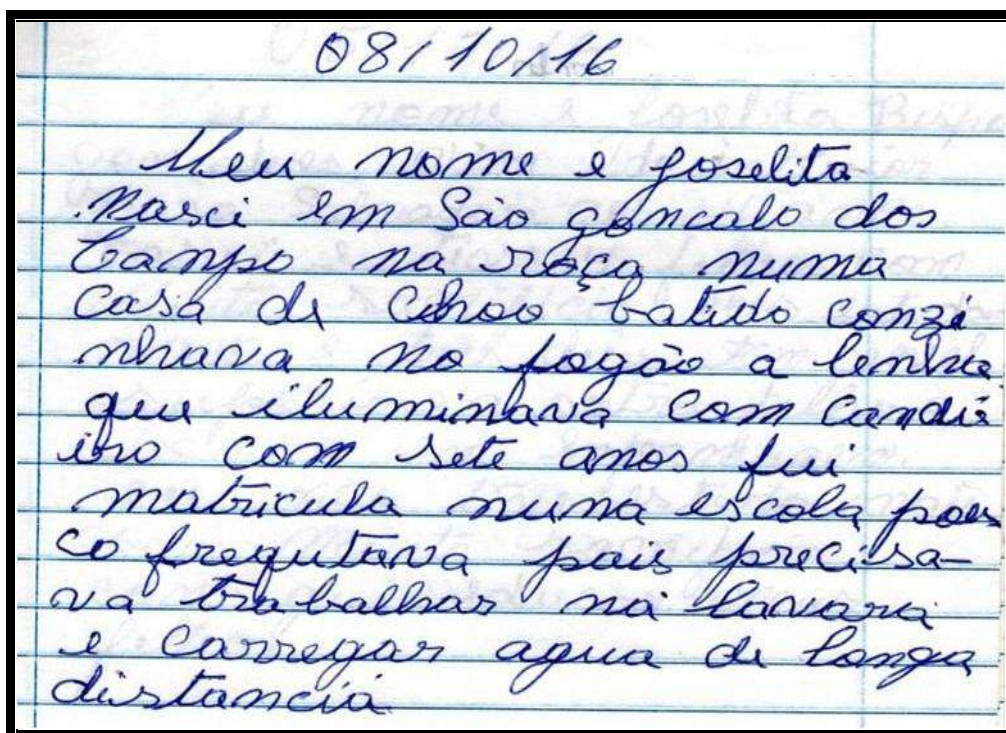 08/10/16
Meu nome e Joselita
Nasci em São goncalo dos
Campo na roça numa
casa de chao batido conzi
nhava no fogão a lenha
que iluminava com candi
iro com sete anos fui
matricula numa escola pou
co frequtava pois precisa-
va trabalhar na lavora
e carregar agua de longa
distancia